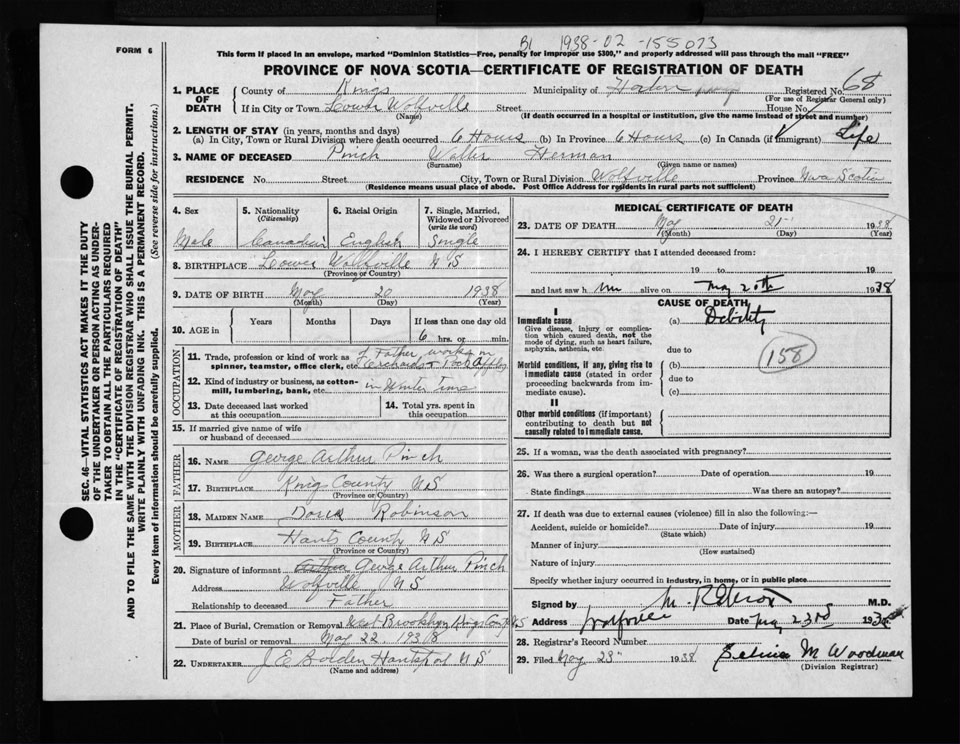 B1 1938-02-155073
FORM 6
This form if placed in an envelope, marked "Dominion Statistics—Free, penalty for improper use $300," and properly addressed will pass through the mail "FREE"
PROVINCE OF NOVA SCOTIA—CERTIFICATE OF REGISTRATION OF DEATH
1. PLACE OF DEATH
County of Kings Municipality of Horton Registered No. 68
(For use of Registrar General only)
If in City or Town Lower Wolfville Street House No.
(Name) (If death occurred in a hospital or institution, give the name instead of street and number)
2. LENGTH OF STAY (in years, months and days)
(a) In City, Town or Rural Division where death occurred 6 Hours (b) In Province 6 Hours (c) In Canada (if immigrant) Life
3. NAME OF DECEASED Pinch Walter Herman
(Surname) (Given name or names)
RESIDENCE No. Street City, Town or Rural Division Wolfville Province Nova Scotia
(Residence means usual place of abode. Post Office Address for residents in rural parts not sufficient)
SEC. 46—VITAL STATISTICS ACT MAKES IT THE DUTY
OF THE UNDERTAKER OR PERSON ACTING AS UNDER-
TAKER TO OBTAIN ALL THE PARTICULARS REQUIRED
IN THE "CERTIFICATE OF REGISTRATION OF DEATH"
AND TO FILE THE SAME WITH THE DIVISION REGISTRAR WHO SHALL ISSUE THE BURIAL PERMIT.
WRITE PLAINLY WITH UNFADING INK. THIS IS A PERMANENT RECORD.
Every item of information should be carefully supplied. (See reverse side for instructions.)
4. Sex 5. Nationality (Citizenship) 6. Racial Origin 7. Single, Married, Widowed or Divorced (write the word)
Male Canadian English Single
8. BIRTHPLACE Lower Wolfville N S
(Province or Country)
9. DATE OF BIRTH May 20 1938
(Month) (Day) (Year)
10. AGE in Years Months Days If less than one day old
6 hrs. or min.
OCCUPATION
11. Trade, profession or kind of work as spinner, teamster, office clerk, etc. Father works in Orchards &
12. Kind of industry or business, as cotton-mill, lumbering, bank, etc. in Winter Time
13. Date deceased last worked at this occupation
14. Total yrs. spent in this occupation
15. If married give name of wife or husband of deceased
FATHER
16. NAME George Arthur Pinch
17. BIRTHPLACE Kings County N S
(Province or Country)
MOTHER
18. MAIDEN NAME Robinson
19. BIRTHPLACE Hants County N S
(Province or Country)
20. Signature of informant George Arthur Pinch
Address Wolfville N S
Relationship to deceased Father
21. Place of Burial, Cremation or Removal West Brooklyn Kings Co N S
Date of burial or removal May 22 1938
22. UNDERTAKER J E Bolden Hantsport N S
(Name and address)
MEDICAL CERTIFICATE OF DEATH
23. DATE OF DEATH May 21 1938
(Month) (Day) (Year)
24. I HEREBY CERTIFY that I attended deceased from:
19 to 19
and last saw h im alive on May 20th 1938
CAUSE OF DEATH
I
Immediate cause (a) Debility
Give disease, injury or complication which caused death, not the mode of dying, such as heart failure, asphyxia, asthenia, etc.
due to
158
Morbid conditions, if any, giving rise to immediate cause (stated in order proceeding backwards from immediate cause).
(b)
due to
(c)
II
Other morbid conditions (if important) contributing to death but not causally related to immediate cause.
25. If a woman, was the death associated with pregnancy?
26. Was there a surgical operation? Date of operation 19
State findings Was there an autopsy?
27. If death was due to external causes (violence) fill in also the following:—
Accident, suicide or homicide? Date of injury 19
(State which)
Manner of injury
(How sustained)
Nature of injury
Specify whether injury occurred in industry, in home, or in public place
Signed by M.D.
Address Wolfville Date May 23rd 1938
28. Registrar's Record Number
29. Filed May 23 1938 M Woodman
(Division Registrar)